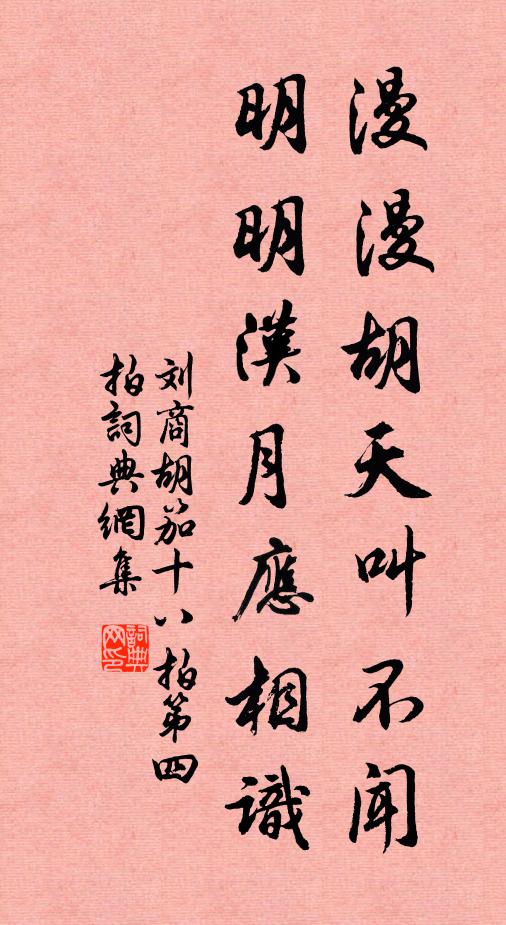 漫漫胡天叫不闻
明明漢月應相識
刘商胡笳十八拍第四
拍詞典網集
詞典
网印